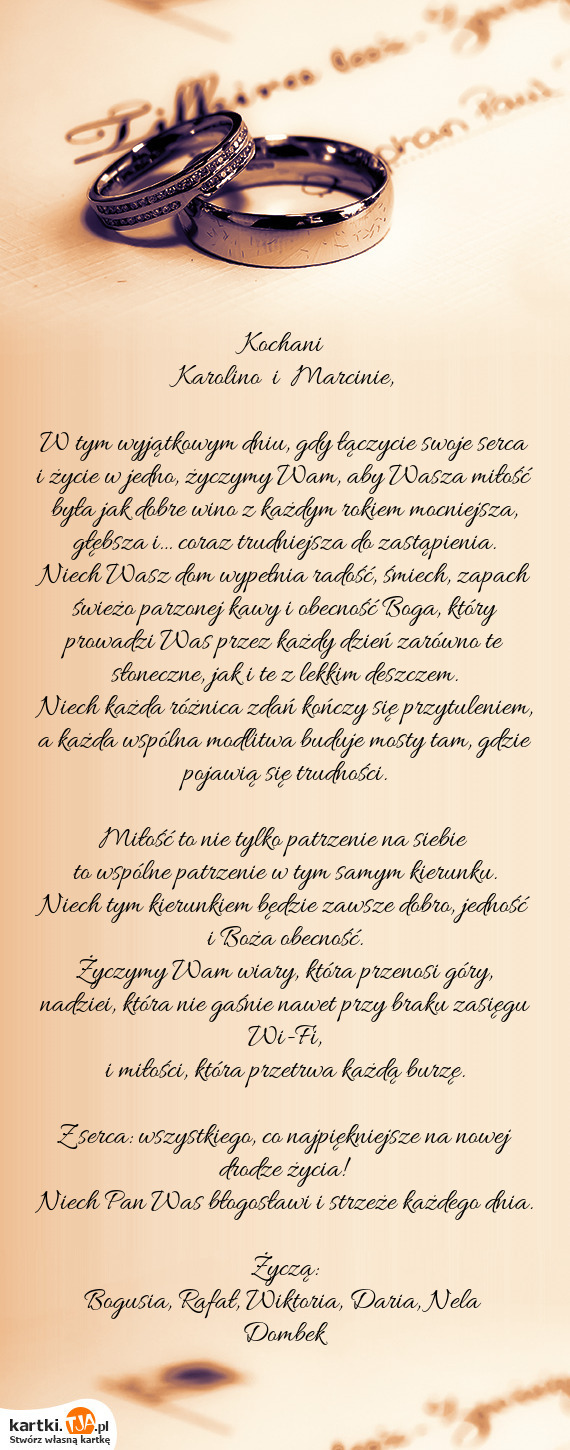 Kochani
Karolino i Marcinie,
W tym wyjątkowym dniu, gdy łączycie swoje serca
i życie w jedno, życzymy Wam, aby Wasza miłość
była jak dobre wino z każdym rokiem mocniejsza,
głębsza i... coraz trudniejsza do zastąpienia.
Niech Wasz dom wypełnia radość, śmiech, zapach
świeżo parzonej kawy i obecność Boga, który
prowadzi Was przez każdy dzień zarówno te
słoneczne, jak i te z lekkim deszczem.
Niech każda różnica zdań kończy się przytuleniem,
a każda wspólna modlitwa buduje mosty tam, gdzie
pojawią się trudności.
Miłość to nie tylko patrzenie na siebie
to wspólne patrzenie w tym samym kierunku.
Niech tym kierunkiem będzie zawsze dobro, jedność
i Boża obecność.
Życzymy Wam wiary, która przenosi góry,
nadziei, która nie gaśnie nawet przy braku zasięgu
Wi-Fi,
i miłości, która przetrwa każdą burzę.
Z serca: wszystkiego, co najpiękniejsze na nowej
drodze życia!
Niech Pan Was błogosławi i strzeże każdego dnia.
Życzą:
Bogusia, Rafał, Wiktoria, Daria, Nela
Dombek
kartki.TJA.pl
Stwórz własną kartkę